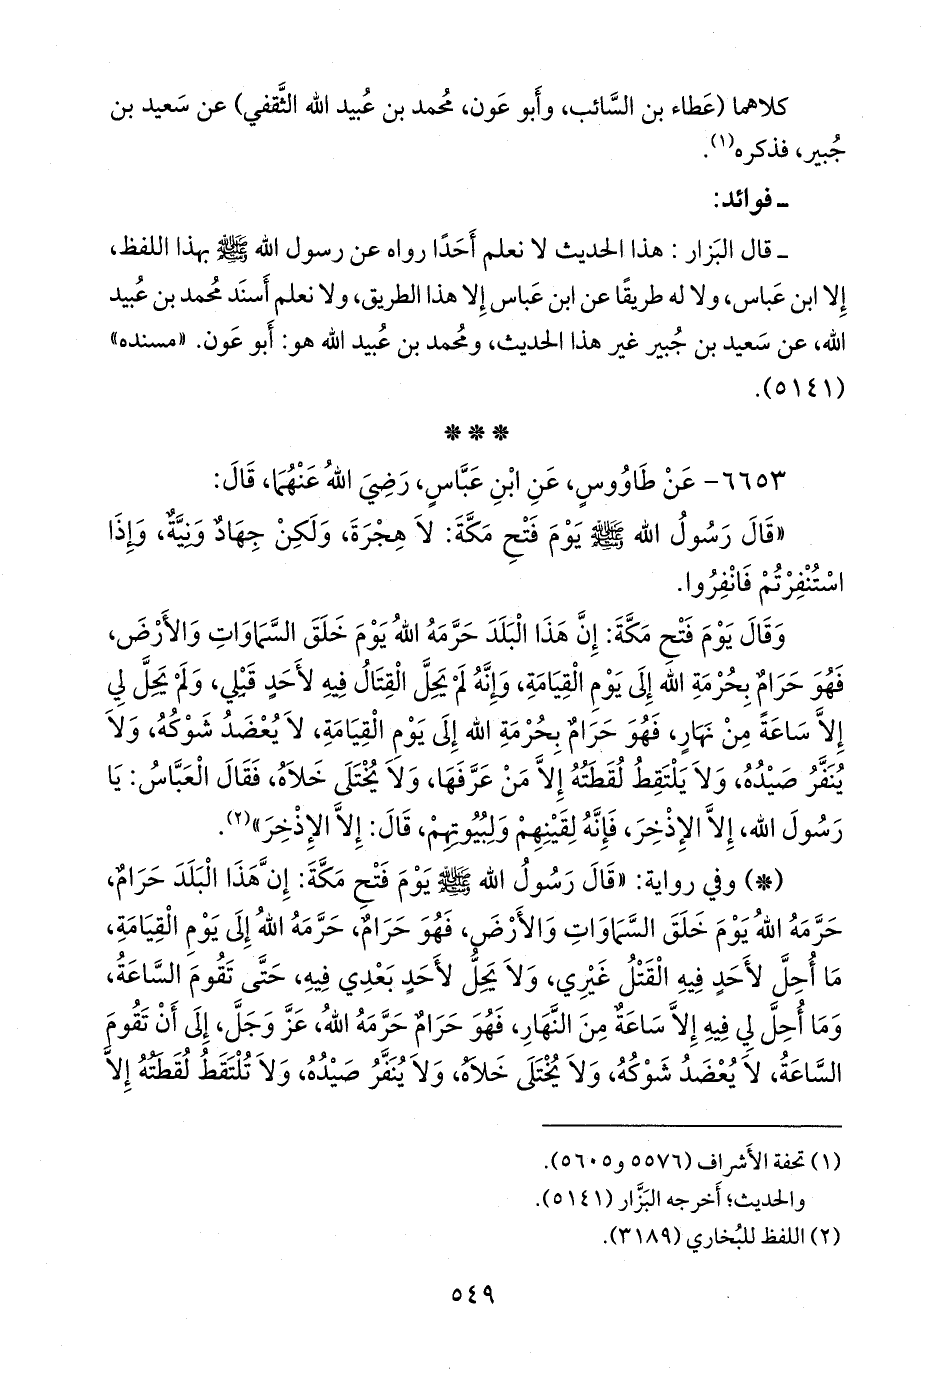 كلاهما (عَطاء بن السَّائب، وأَبو عَون، مُحمد بن عُبيد الله الثَّقفي) عن سَعيد بن
جُبير، فذكره(١).
ـ فوائد:
ـ قال البَزار : هذا الحديث لا نعلم أَحَدًا رواه عن رسول الله ﷺ بهذا اللفظ،
إِلا ابن عَباس، ولا له طريقًا عن ابن عَباس إِلا هذا الطريق، ولا نعلم أَسنَد مُحمد بن عُبيد
الله، عن سَعيد بن جُبير غير هذا الحديث، ومُحمد بن عُبيد الله هو: أَبو عَون. «مسنده»
(٥١٤١).
* * *
٦٦٥٣- عَنْ طَاوُوسٍ، عَنِ ابْنِ عَبَّاسٍ، رَضِيَ اللهُ عَنْهُمَا، قَالَ:
«قَالَ رَسُولُ الله ﷺ يَوْمَ فَتْحِ مَكَّةَ: لاَ هِجْرَةَ، وَلَكِنْ جِهَادٌ وَنِيَّةٌ، وَإِذَا
اسْتُنْفِرْتُمْ فَانْفِرُوا.
وَقَالَ يَوْمَ فَتْحِ مَكَّةَ: إِنَّ هَذَا الْبَلَدَ حَرَّمَهُ اللهُ يَوْمَ خَلَقَ السَّمَاوَاتِ وَالأَرْضَ،
فَهُوَ حَرَامٌ بِحُرْمَةِ الله إِلَى يَوْمِ الْقِيَامَةِ، وَإِنَّهُ لَمْ يَحِلَّ الْقِتَالُ فِيهِ لأَحَدٍ قَبْلِي، وَلَمْ يَحِلَّ لِي
إِلاَّ سَاعَةً مِنْ نَهَارٍ، فَهُوَ حَرَامٌ بِحُرْمَةِ الله إِلَى يَوْمِ الْقِيَامَةِ، لاَ يُعْضَدُ شَوْكُهُ، وَلاَ
يُنَفَّرُ صَيْدُهُ، وَلاَ يَلْتَقِطُ لُقَطَتَهُ إِلاَّ مَنْ عَرَّفَهَا، وَلاَ يُخْتَلَى خَلاَهُ، فَقَالَ الْعَبَّاسُ: يَا
رَسُولَ الله، إِلاَّ الإِذْخِرَ، فَإِنَّهُ لِقَيْنِهِمْ وَلِبُيُوتِهِمْ، قَالَ: إِلاَّ الإِذْخِرَ»(٢).
(*) وفي رواية: «قَالَ رَسُولُ الله ﷺ يَوْمَ فَتْحِ مَكَّةَ: إِنَّ هَذَا الْبَلَدَ حَرَامٌ،
حَرَّمَهُ اللهُ يَوْمَ خَلَقَ السَّمَاوَاتِ وَالأَرْضَ، فَهُوَ حَرَامٌ، حَرَّمَهُ اللهُ إِلَى يَوْمِ الْقِيَامَةِ،
مَا أُحِلَّ لأَحَدٍ فِيهِ الْقَتْلُ غَيْرِي، وَلاَ يَحِلُّ لأَحَدٍ بَعْدِي فِيهِ، حَتَّى تَقُومَ السَّاعَةُ،
وَمَا أُحِلَّ لِي فِيهِ إِلاَّ سَاعَةٌ مِنَ النَّهَارِ، فَهُوَ حَرَامٌ حَرَّمَهُ اللهُ، عَزَّ وَجَلَّ، إِلَى أَنْ تَقُومَ
السَّاعَةُ، لاَ يُعْضَدُ شَوْكُهُ، وَلاَ يُخْتَلَى خَلاَهُ، وَلاَ يُنَفَّرُ صَيْدُهُ، وَلاَ تُلْتَقَطُ لُقَطَتُهُ إِلاَّ
(١) تحفة الأَشراف (٥٥٧٦ و٥٦٠٥).
والحديث؛ أَخرجه البَزَّار (٥١٤١).
(٢) اللفظ للبُخاري (٣١٨٩).
٥٤٩